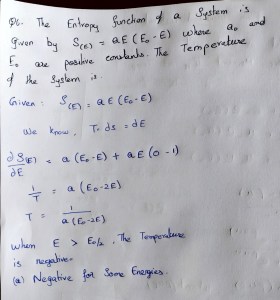 Q6. The Entropy function of a System is
given by S(E) = aE (E₀-E) where a₀ and
E₀ are positive constants. The Temperature
of the System is.
Given : S(E) = aE (E₀-E)
We know, T·ds = dE
∂S(E)/∂E = a (E₀-E) + aE (0-1)
1/T = a (E₀-2E)
T = 1/a(E₀-2E)
When E > E₀/₂, The Temperature
is negative.
(a) Negative for Some Energies.